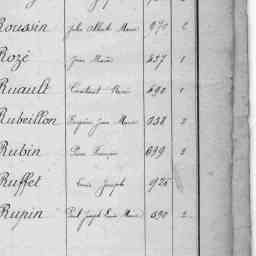 Roussin Jules Albert Marie 970 2
Rozé Jean Marie 457 1
Ruault Constant René 490 1
Rubeillon Jean Marie 938 2
Rubin Pierre François 699 2
Ruffet Louis Joseph 925
Rupin Paul Joseph Louis Marie 590 2